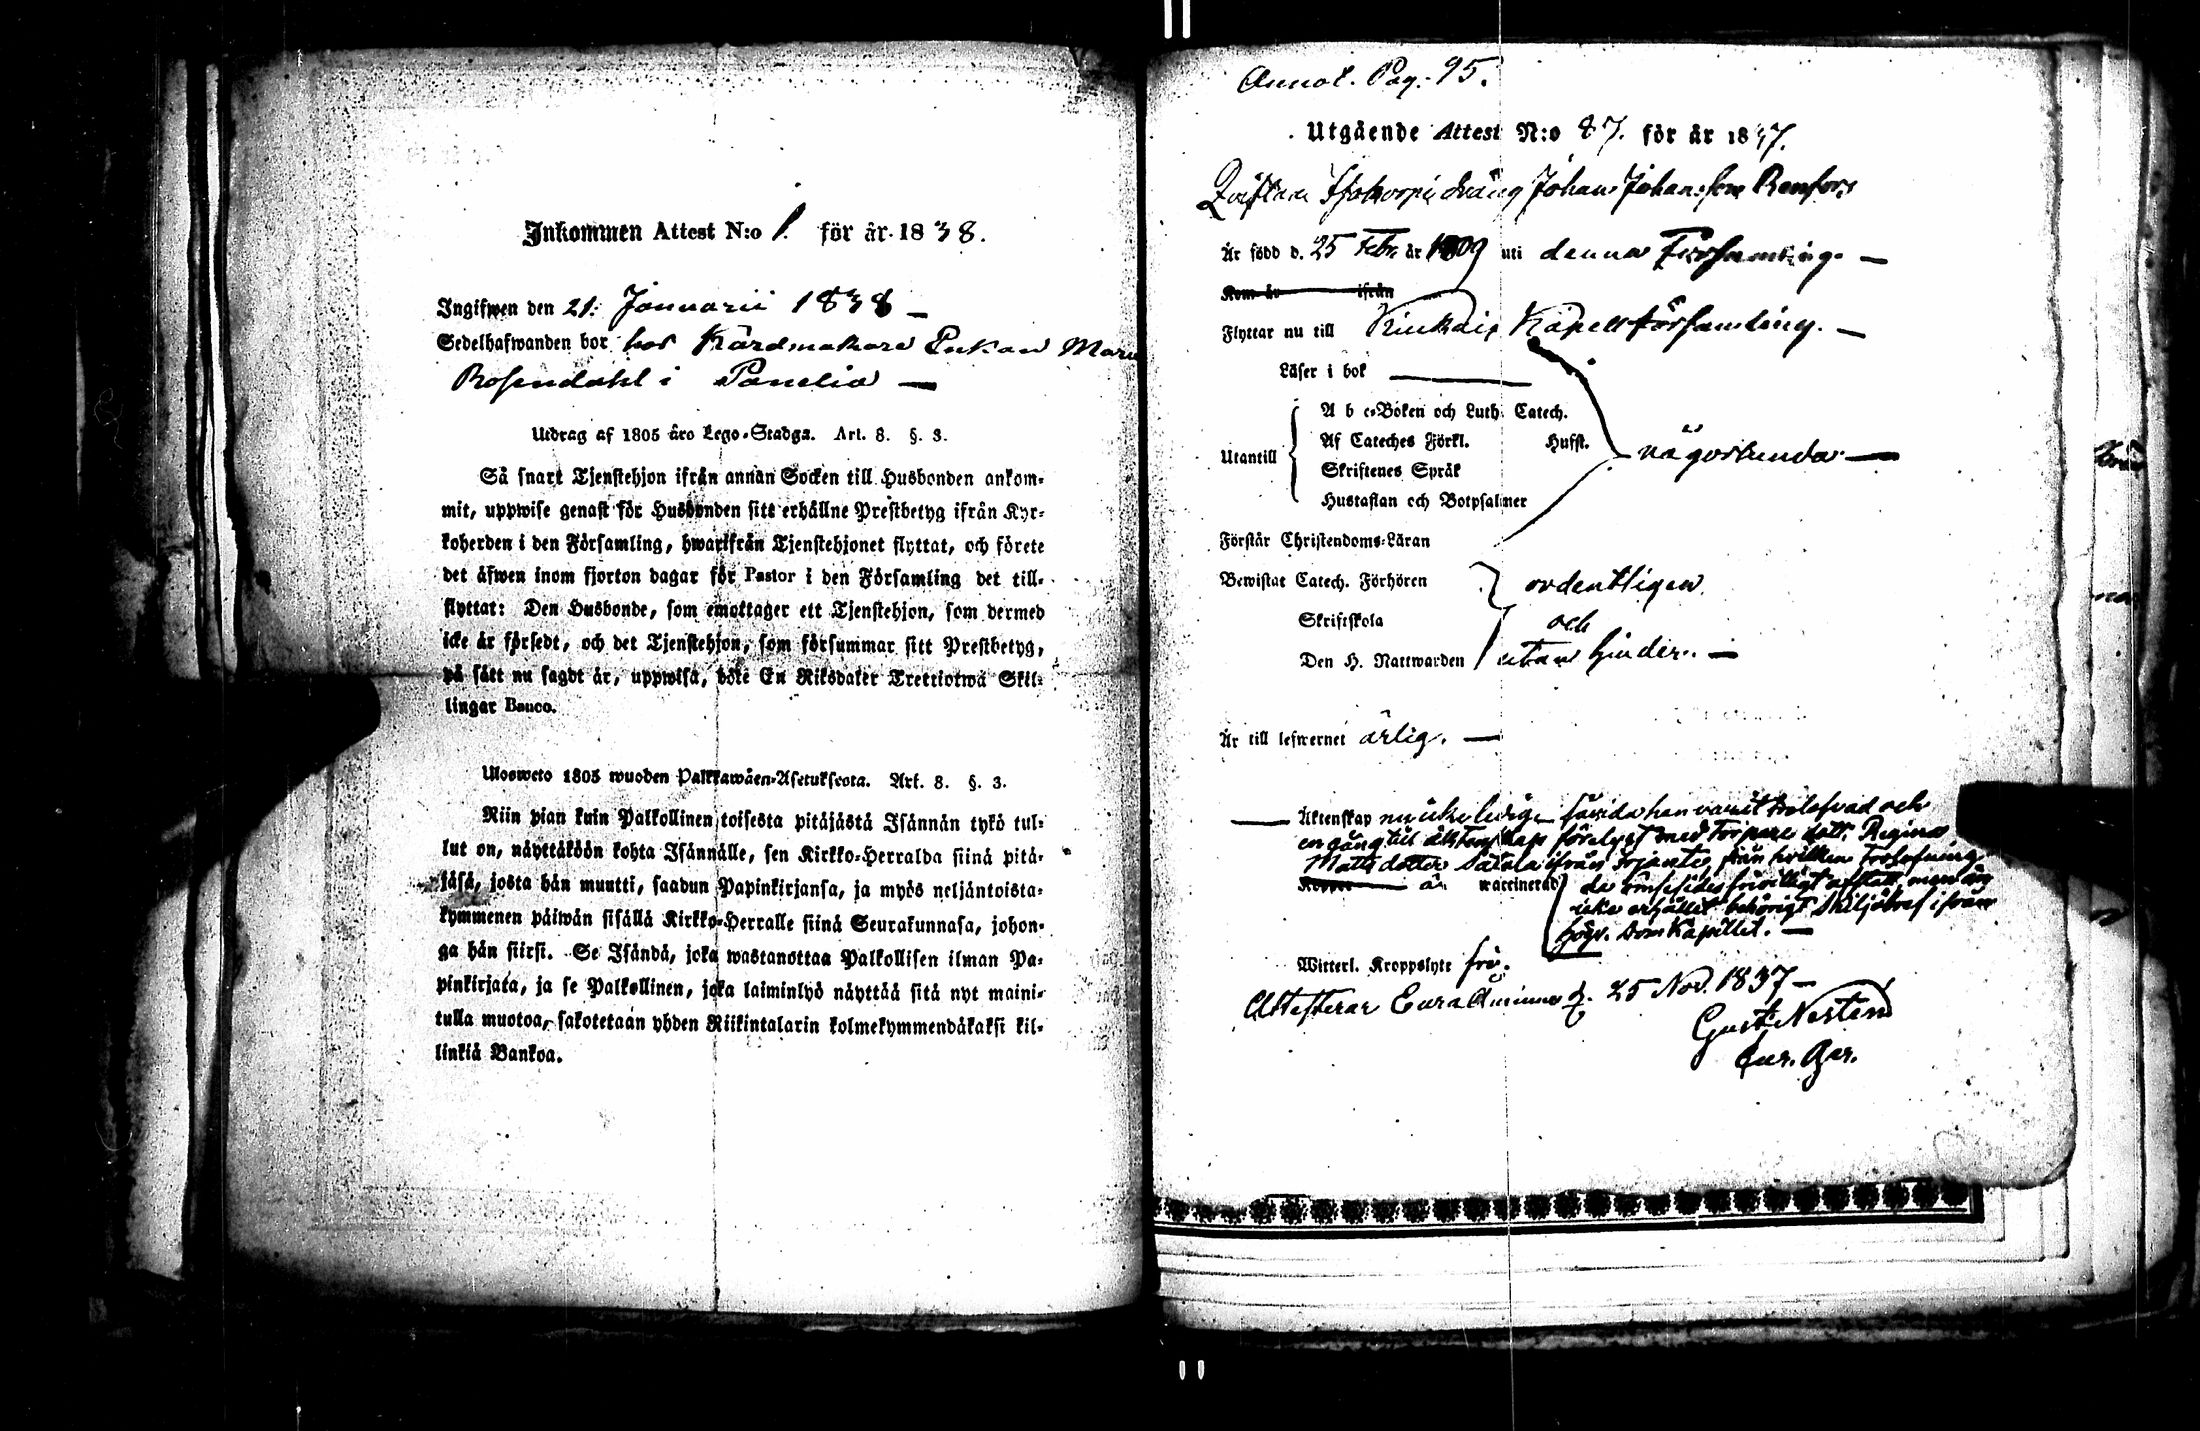 Inkommen Attest N:o 1. för år 1838.
Ingifwen den 21. Januarii 1838 —
Sedelhafwanden bor hos Kardmakare Enkan Maria
Rosendahl i Panelia —
Utdrag af 1805 års Lego-Stadga. Art. 8. §. 3.
Så snart Tjenstehjon ifrån annan Socken till Husbonden ankom-
mit, uppwise genast för Husbonden sitt erhållne Prestbetyg ifrån Kyr-
koherden i den Församling, hwarifrån Tjenstehjonet flyttat, och förete
det äfwen inom fjorton dagar för Pastor i den Församling det till-
flyttat: Den Husbonde, som emottager ett Tjenstehjon, som dermed
icke är försedt, och det Tjenstehjon, som försummar sitt Prestbetyg,
på sätt nu sagdt är, uppwisa, böte En Riksdaler Trettiotwå Skil-
lingar Banco.
Ulosweto 1805 wuoden Palkkawäen-Asetuksesta. Art. 8. §. 3.
Niin pian kuin Palkollinen toisesta pitäjästä Isännän tykö tul-
lut on, näyttäköön kohta Isännälle, sen Kirkko-Herralda siinä pitä-
jäsä, josta hän muutti, saadun Papinkirjansa, ja myös neljäntoista-
kymmenen päiwän sisällä Kirkko-Herralle siinä Seurakunnasa, johon-
ga hän siirsi. Se Isändä, joka wastanottaa Palkollisen ilman Pa-
pinkirjata, ja se Palkollinen, joka laiminlyö näyttää sitä nyt maini-
tulla muotoa, sakotetaan yhden Riikintalarin kolmekymmendäkaksi kil-
linkiä Bankoa.
Annot. Pag. 95.
Utgående Attest N:o 87. för år 1837.
dräng Johan Johansson Renfors
Är född d. 25 Febr. år 1809 uti denna Församling. —
Kom år ifrån
Flyttar nu till Kiukais Kapellförsamling. —
Läser i bok
A b c-Boken och Luth. Catech.
Af Cateches Förkl. Husst.
Utantill någorlunda —
Skriftenes Språk
Hustaflan och Botpsalmer
Förstår Christendoms-Läran
Bewistat Catech. Förhören ordentligen
Skriftskola och
Den H. Nattwarden utan hinder. —
Är till lefwernet ärlig. —
Äktenskap nu icke ledig, han varit trolofvad och
en gång till äktenskap förelyst med Torpare dott. Regina
Matts dotter ifrån från hvilken
är waccinerad de ömsesides frivilligt afstått men
icke erhållit behörigt Skiljobref ifrån
Högv. Domkapitlet. —
Witterl. Kroppslyte fri.
Attesterar Eura Åminne d. 25 Nov. 1837 —
Gust. Nesten